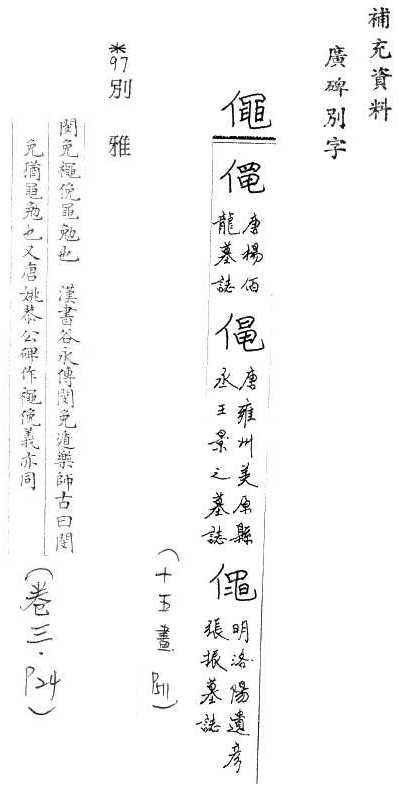 補充資料
廣碑別字
僶 唐楊佰龍墓誌 唐雍州美原縣丞王景之墓誌 明洛陽遺彥張振墓誌
(十五畫 P511)
*97別 雅
閔免僶俛黽勉也 漢書谷永傳閔免遁樂師古曰閔
免猶黽勉也又唐姚恭公碑作僶俛義亦同
(卷三·P24)